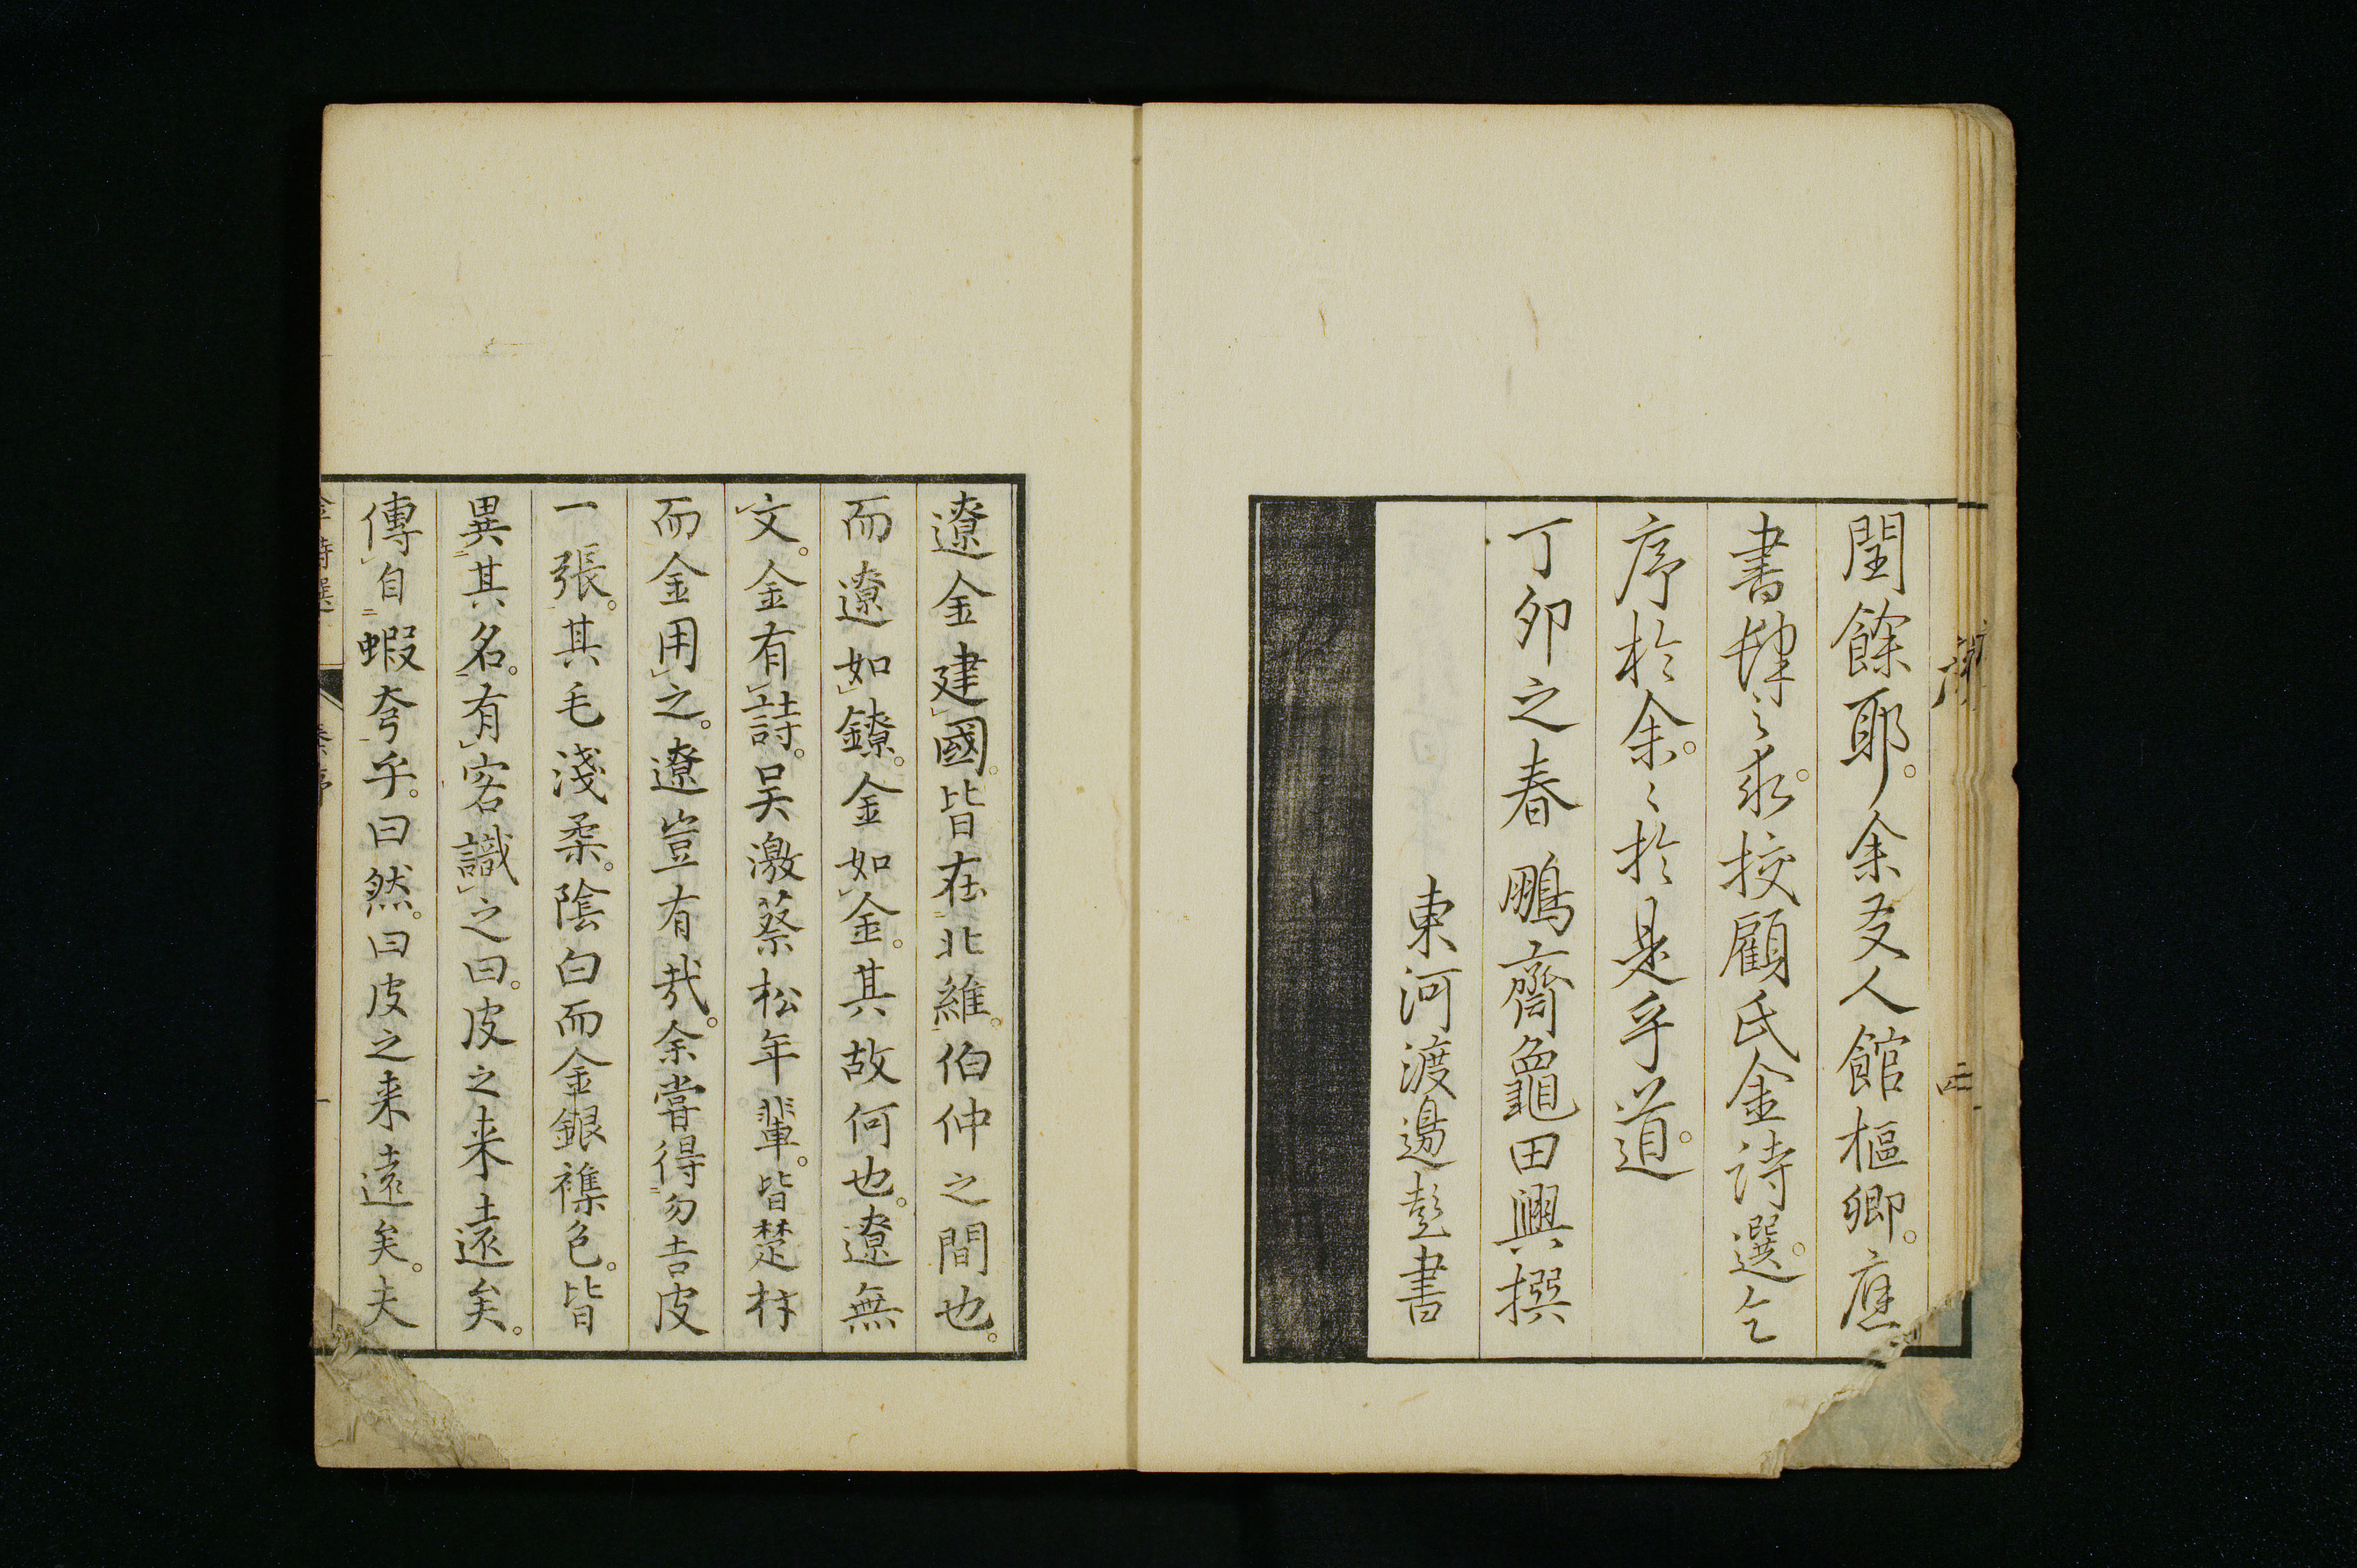 閏餘耶。余友人館樞卿。應
書肆之求。挍顧氏金詩選。乞
序於余。〻於是乎道。
丁卯之春 鵬齋龜田興撰
東河渡邊彭書
遼金建國。皆在北維。伯仲之間也。
而遼如鐐。金如金。其故何也。遼無
文。金有詩。吴激蔡松年輩。皆楚材
而金用之。遼豈有哉。余嘗得勿吉皮
一張。其毛淺柔。陰白而金銀襍色。皆
異其名。有客識之曰。皮之来遠矣。
傳自蝦夸乎。曰然。曰皮之来遠矣。夫